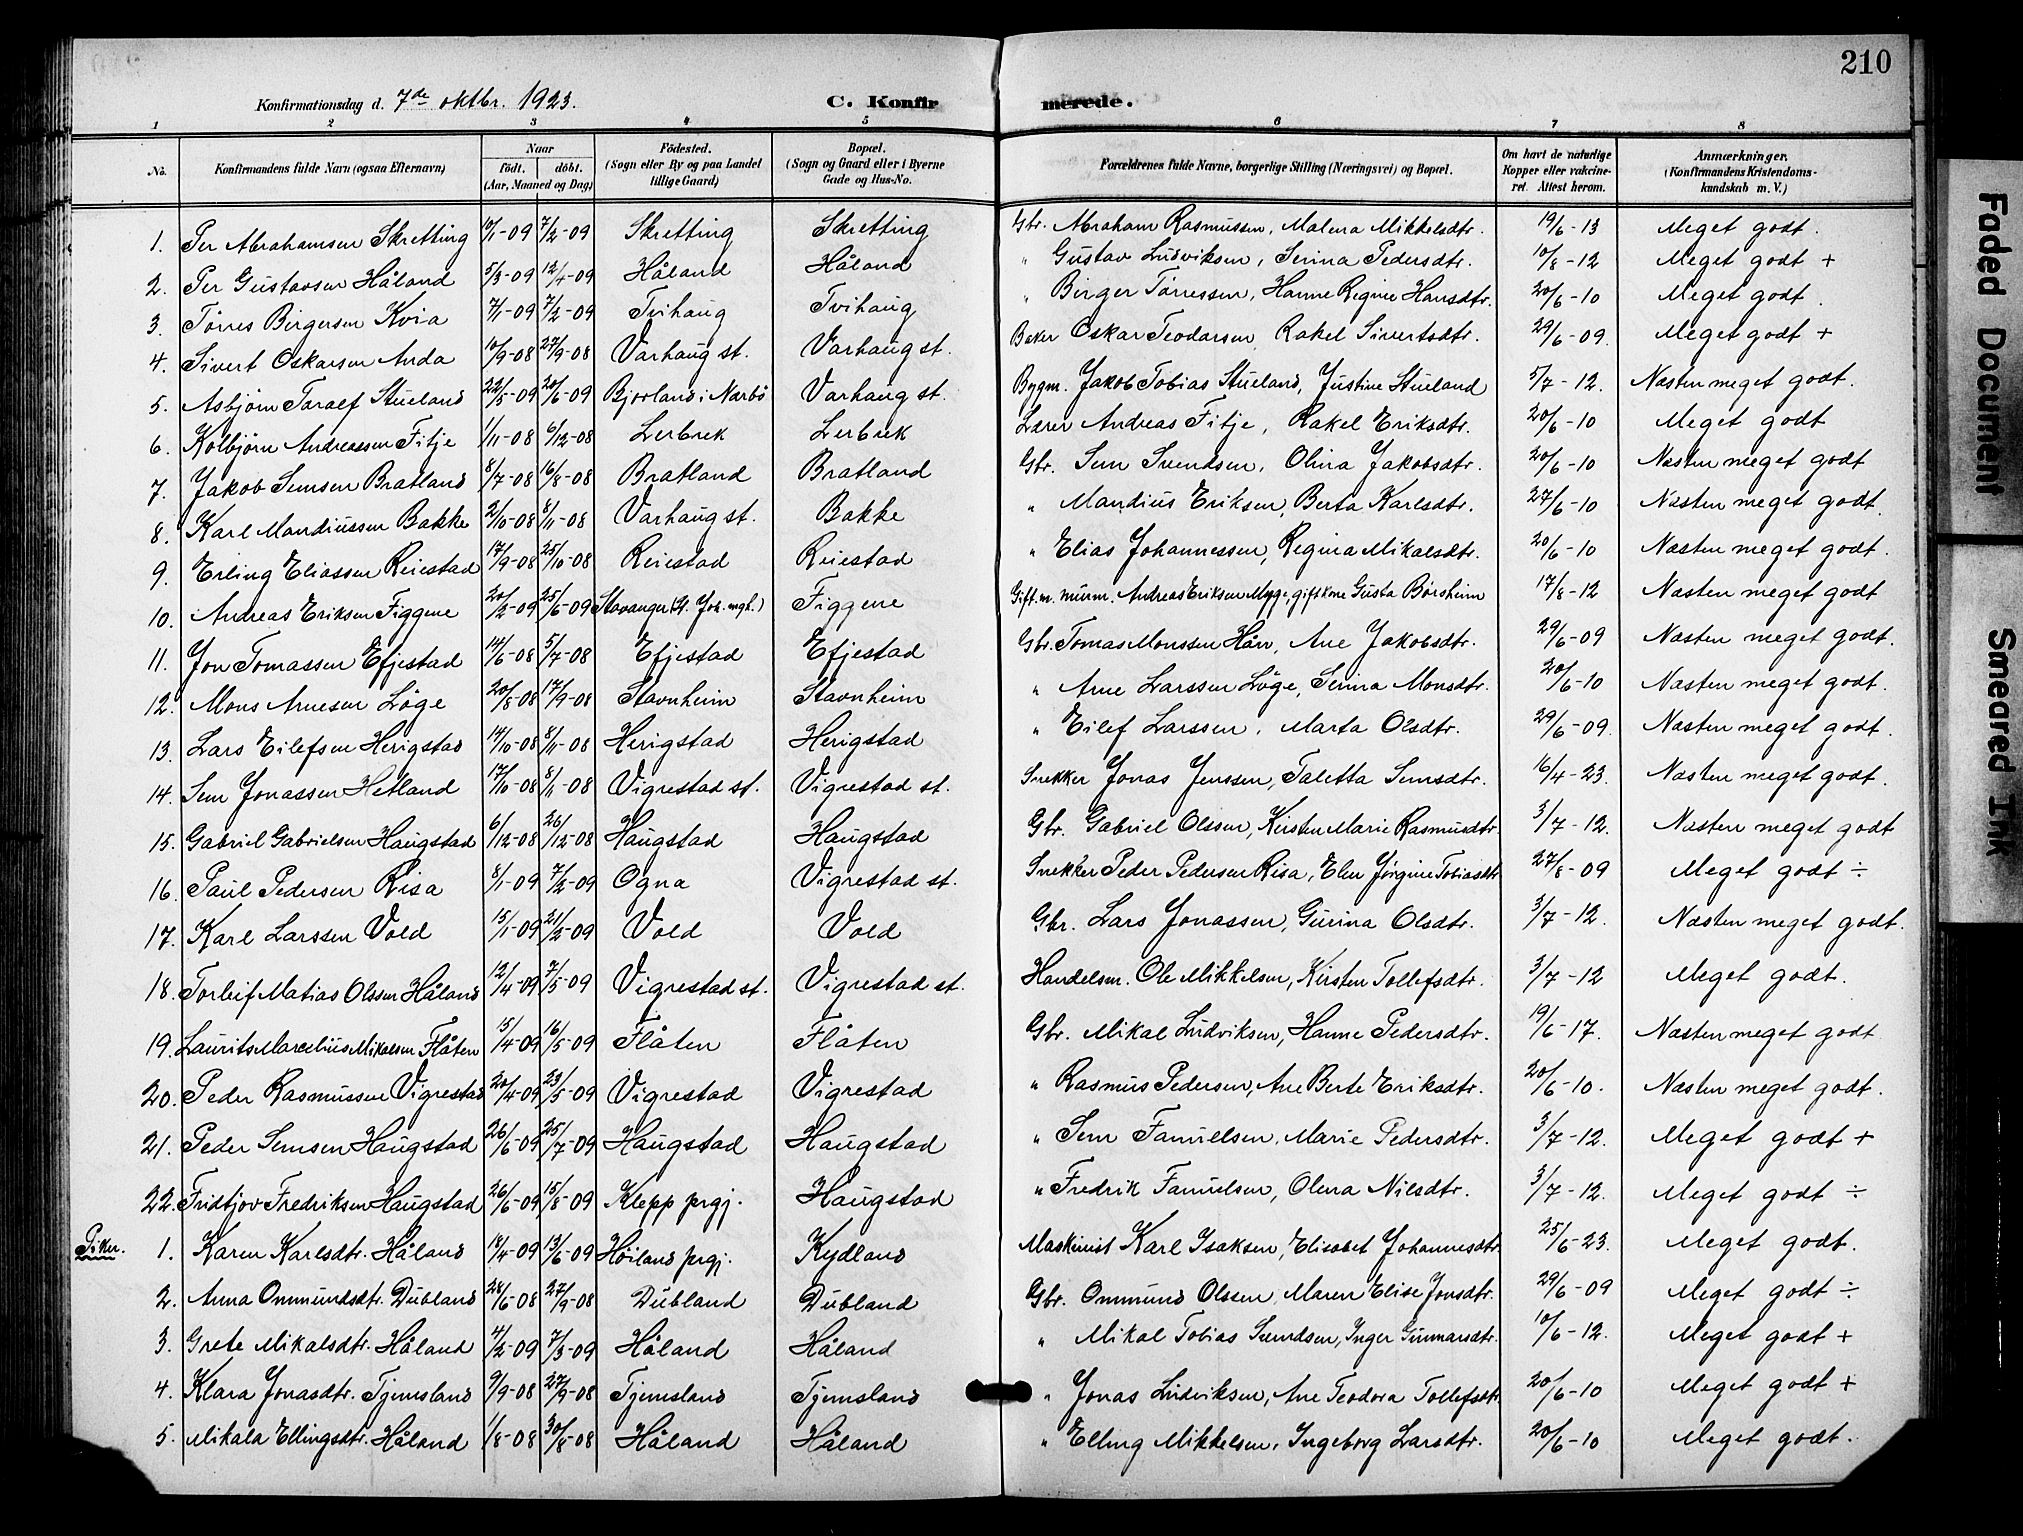 210
Konfirmationsdag d. 7de oktbr. 1923. C. Konfirmerede.
1 2 3 4 5 6 7 8
No. Konfirmandens fulde Navn (ogsaa Efternavn) Naar født. døbt. (Aar, Maaned og Dag) Fødested. (Sogn eller By og paa Landet tillige Gaard) Bopæl. (Sogn og Gaard eller i Byerne Gade og Hus-No. Forældrenes fulde Navne, borgerlige Stilling (Næringsvei) og Bopæl. Om havt de naturlige Kopper eller vakcineret. Attest herom. Anmærkninger. (Konfirmandens Kristendomskundskab m. V.)
1. Per Abrahamsen Skretting 10/1-09 7/2-09 Skretting Skretting Gbr. Abraham Rasmussen, Malena Mikkelsdtr. 19/6-13 Meget godt.
2. Per Gustavsen Håland 5/3-09 12/4-09 Håland Håland " Gustav Ludviksen, Serina Pedersdtr. 10/8-12 Meget godt +
3. Tørres Birgersen Kvia 7/1-09 7/2-09 Tvihaug Tvihaug " Birger Tørressen, Hanne Regine Hansdtr. 20/6-10 Meget godt.
4. Sivert Oskarsen Anda 10/9-08 27/9-08 Varhaug st. Varhaug st. Baker Oskar Teodorsen, Rakel Sivertsdtr. 29/6-09. Meget godt +
5. Asbjørn Taralf Stueland 22/5-09 20/6-09 Bjorland i Nærbø Varhaug st. Bygm. Jakob Tobias Stueland, Justine Stueland 5/7-12. Næsten meget godt.
6. Kolbjørn Andreassen Fitje 1/11-08 6/12-08 Lerbrek Lerbrek Lærer Andreas Fitje, Rakel Eriksdtr. 20/6-10 Meget godt
7. Jakob Semsen Bratland 8/7-08 16/8-08 Bratland Bratland Gbr. Sem Svendsen, Olina Jakobsdtr. 20/6-10 Næsten meget godt
8. Karl Mandiussen Bakke 2/10-08 8/11-08 Varhaug st. Bakke " Mandius Eriksen, Berta Karlsdtr. 27/6-10 Næsten meget godt.
9. Erling Eliassen Reiestad 17/9-08 25/10-08 Reiestad Reiestad " Elias Johannessen, Regina Mikalsdtr. 20/6-10 Næsten meget godt.
10. Andreas Eriksen Figgene 20/2-09 25/6-09 Stavanger (St. Joh. mgh.) Figgene Gift. m. murm. Andreas Eriksen Myge, gift kone Gusta Børsheim 17/8-12 Næsten meget godt
11. Jon Tomassen Efjestad 14/6-08 5/7-08 Efjestad Efjestad Gbr. Tomas Monssen Hårr, Ane Jakobsdtr. 29/6-09 Næsten meget godt.
12. Mons Arnesen Løge 20/8-08 17/9-08 Stavnheim Stavnheim " Arne Larssen Løge, Serina Monsdtr. 20/6-10 Næsten meget godt.
13. Lars Eilefsen Herigstad 14/10-08 8/11-08 Herigstad Herigstad " Eilef Larssen, Marta Olsdtr. 29/6-09. Næsten meget godt.
14. Sem Jonassen Hetland 17/10-08 8/11-08 Vigrestad st. Vigrestad st. Snekker Jonas Jenssen, Taletta Semsdtr. 16/4-23. Næsten meget godt.
15. Gabriel Gabrielsen Haugstad 6/12-08 26/12-08 Haugstad Haugstad Gbr. Gabriel Olssen, Kirsten Marie Rasmusdtr. 3/7-12. Næsten meget godt
16. Paul Pedersen Risa 8/1-09 7/2-09 Ogna Vigrestad st. Snekker Peder Pedersen Risa, Elen Jørgine Tobiasdtr 27/8-09 Meget godt ÷
17. Karl Larssen Vold 15/1-09 21/2-09 Vold Vold Gbr. Lars Jonassen, Gurina Olsdtr. 3/7-12. Næsten meget godt.
18. Torleif Matias Olssen Håland 12/4-09 7/5-09 Vigrestad st. Vigrestad st. Handelsm. Ole Mikkelsen, Kirsten Tollefsdtr. 3/7-12 Meget godt.
19. Laurits Marselius Mikalsen Flåten 15/4-09 16/5-09 Flåten Flåten Gbr. Mikal Ludviksen, Hanne Pedersdtr. 19/6-17. Næsten meget godt
20. Peder Rasmussen Vigrestad 20/4-09 23/5-09 Vigrestad Vigrestad " Rasmus Pedersen, Ane Berte Eriksdtr. 20/6-10. Næsten meget godt.
21. Peder Semsen Haugstad 26/6-09 25/7-09 Haugstad Haugstad " Sem Fanuelsen, Marie Pedersdtr. 3/7-12. Meget godt +
22. Fridtjov Fredriksen Haugstad 26/6-09 15/8-09 Klepp prgj. Haugstad " Fredrik Fanuelsen, Olena Nilsdtr. 3/7-12. Meget godt ÷
Piker. 1. Karen Karlsdtr. Håland 14/4-09 13/6-09 Høiland prgj. Kydland Maskinist Karl Isaksen, Elisabet Johannesdtr. 25/6-23. Meget godt.
2. Anna Ommundsdtr. Dubland 28/6-08 27/9-08 Dubland Dubland Gbr. Ommund Olssen, Maren Elise Jonsdtr. 29/6-09 Meget godt ÷
3. Grete Mikalsdtr. Håland 4/2-09 7/3-09 Håland Håland " Mikal Tobias Svendsen, Inger Gunnarsdtr. 10/6-12. Meget godt +
4. Klara Jonasdtr. Tjemsland 9/9-08 27/9-08 Tjemsland Tjemsland " Jonas Ludviksen, Ane Teodora Tollefsdtr. 20/6-10 Meget godt +
5. Mikala Ellingsdtr. Håland 1/8-08 30/8-08 Håland Håland " Elling Mikkelsen, Ingeborg Larsdtr. 20/6-10 Meget godt.
Faded Document
Smeared Ink